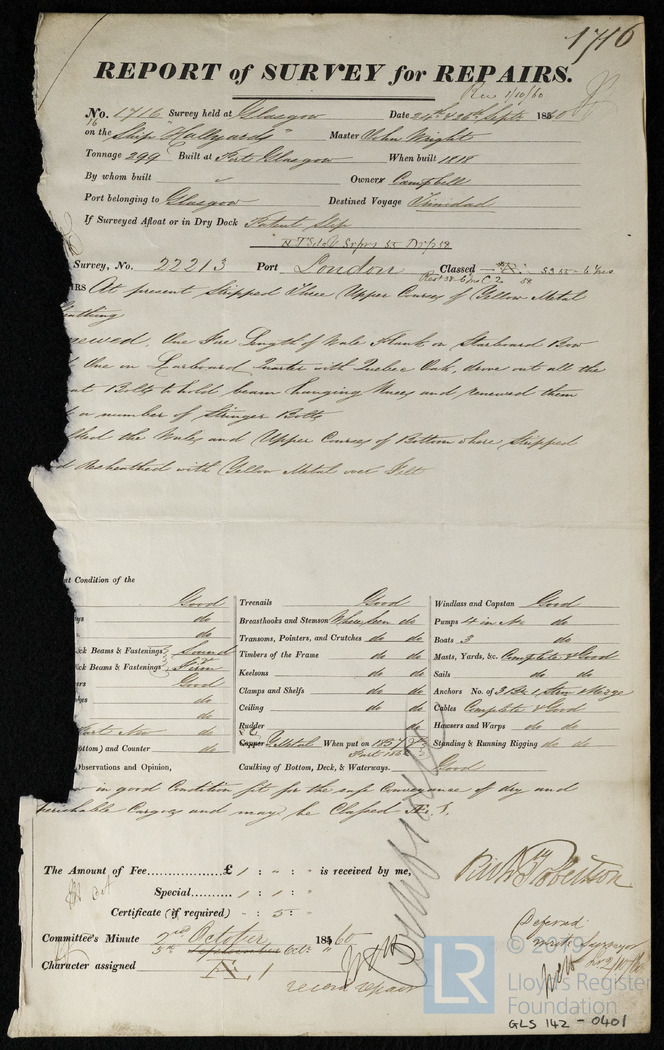 1716
REPORT of SURVEY for REPAIRS.
Rec 1/10/60
No. 1716 Survey held at Glasgow Date 24th & 26th Septr 1860
on the Ship "Hallyards" Master John Wright
Tonnage 299 Built at Port Glasgow When built 1818
By whom built Owners Campbell
Port belonging to Glasgow Destined Voyage Trinidad
If Surveyed Afloat or in Dry Dock Patent Slip
Survey, No. 22213 Port London Classed 53 55 - 6 Yrs
IRS At present Stripped Three Upper Courses of Yellow Metal
Sheathing
One Fore Length of Wale Plank on Starboard Bow
One on Larboard Quarter with Quebec Oak, drove out all the
Bolts to hold beam hanging Knees and renewed them
a number of Stringer Bolts
the Wales and Upper Courses of Bottom where Stripped
Resheathed with Yellow Metal over Felt
nt Condition of the
Good Treenails Good Windlass and Capstan Good
do Breasthooks and Stemson Where seen do Pumps 4 in No.
do Transoms, Pointers, and Crutches do do Boats 3 do
ck Beams & Fastenings Sound Timbers of the Frame do do Masts, Yards, &c. Complete & Good
ck Beams & Fastenings Firm Keelsons do do Sails do do
Good Clamps and Shelfs do do Anchors No. of 3 Br 1 Strm & Kedge
do Ceiling do do Cables Complete & Good
do Rudder do Hawsers and Warps do do
ottoms) and Counter do Copper Y. Metal When put on 1857 Standing & Running Rigging do do
Observations and Opinion, Caulking of Bottom, Deck, & Waterways. Good
in good Condition fit for the safe Conveyance of dry and
perishable Cargoes and may be Classed Æ 1.
The Amount of Fee £ 1 : " : " is received by me,
Special 1 : 1 : "
Certificate (if required) - : 5 : "
Richd Robertson
Committee's Minute 2nd October 1860
5th September Octr "
Character assigned Æ 1
record repairs
Deferred
write Surveyor
© 2019
LR
Lloyd's Register
Foundation
GLS 142 - 0401